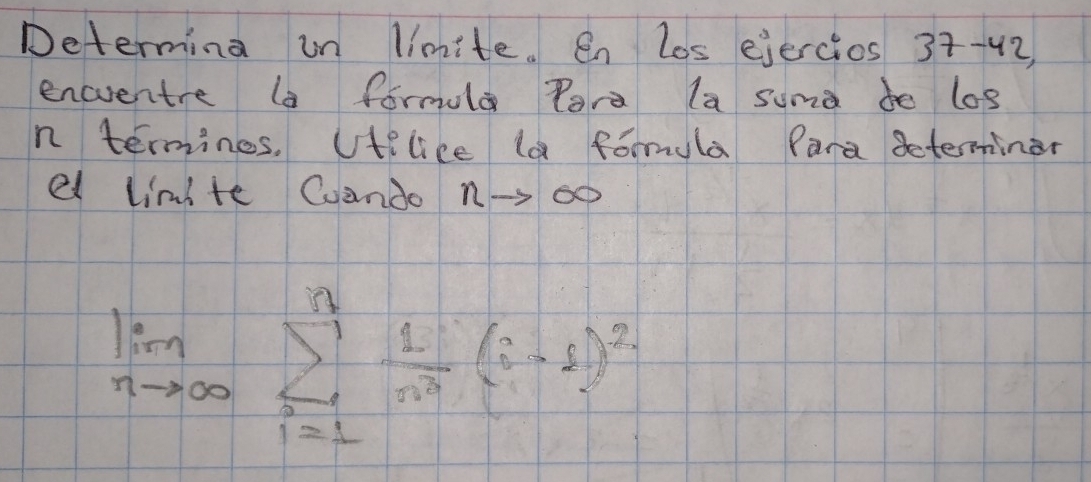 Determina un límite. En los ejercios 37-42,
encuentre la fórmula Para la suma de los
n términos. Utilice la fórmula Para determinar
el limite Cuando n → ∞
lim n→∞ Σ i=1 n 1/n³ (i - 1)²